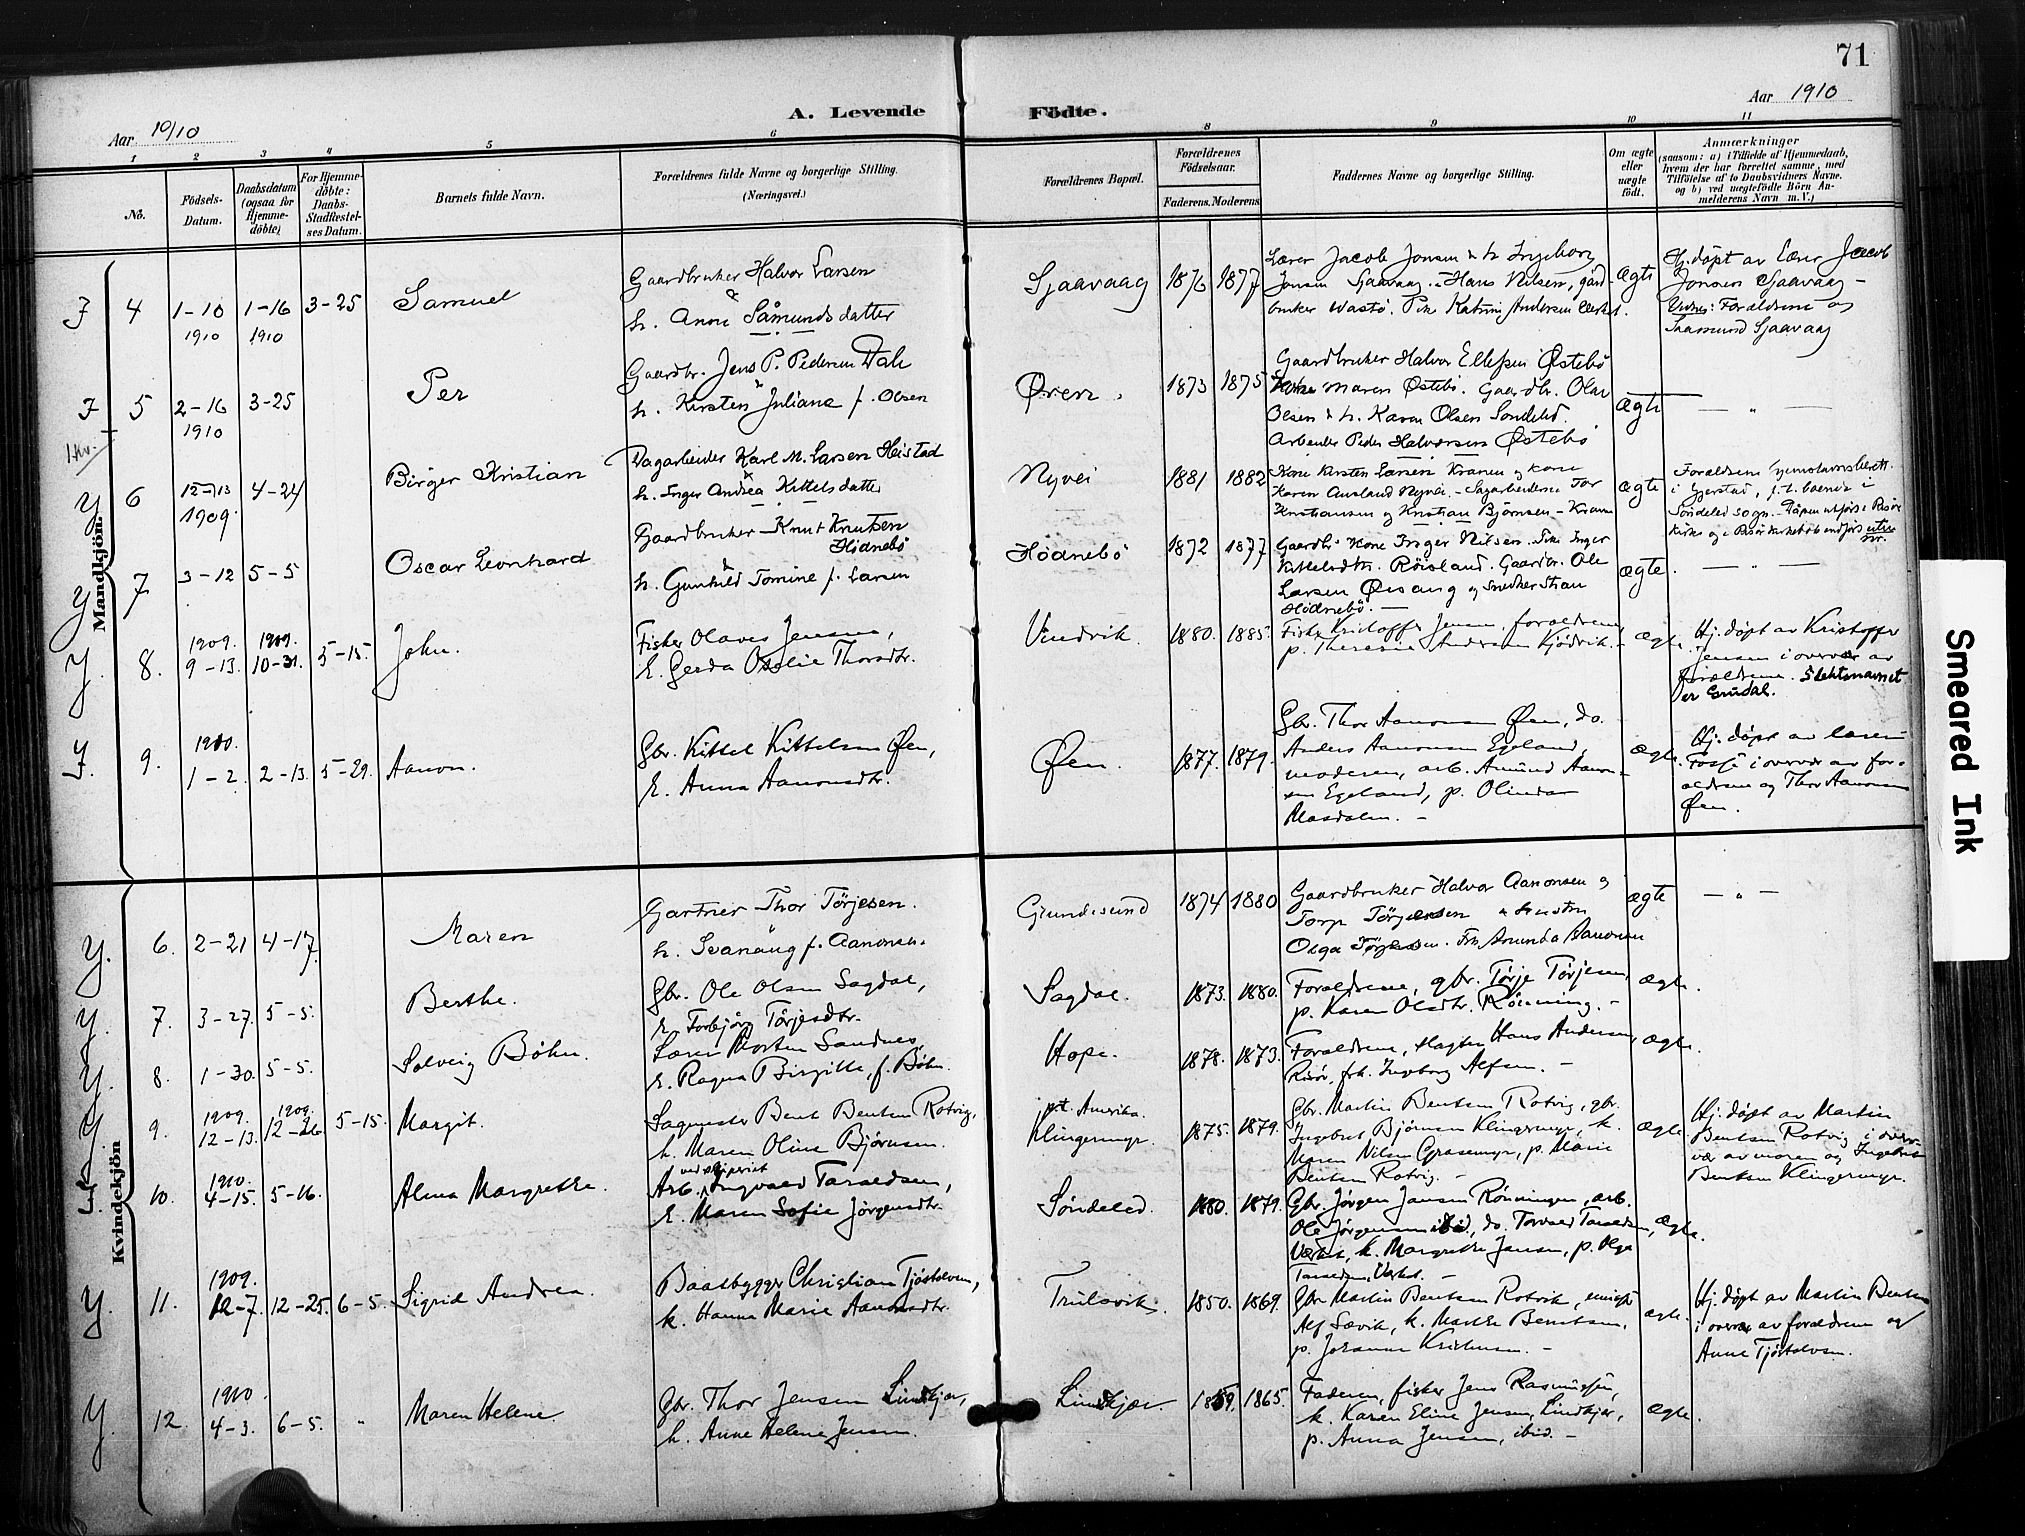 71
Aar 1910
A. Levende Födte.
Aar 1910
1 2 3 4 5 6 8 9 10 11
No.
Födsels-Datum.
Daabsdatum (ogsaa for Hjemme-döbte)
For Hjemme-döbte: Daabs-Stadfæstel-ses Datum.
Barnets fulde Navn.
Forældrenes fulde Navne og borgerlige Stilling.
(Næringsvei.)
Forældrenes Bopæl.
Forældrenes Födselsaar.
Faderens. Moderens
Faddernes Navne og borgerlige Stilling.
Om ægte eller uægte födt.
Anmærkninger
(saasom: a) i Tilfælde af Hjemmedaab,
hvem der har forrettet samme, med
Tilföielse af to Daabsvidners Navne.
og b) ved uegtefödte Börn An-
melderens Navn m. V.)
Mandkjön.
4 1-10 1910 1-16 1910 3-25 Samuel
Gaardbruker Halvor Larsen
h. Anne Sámundsdatter
Sjaavaag 1876 1877
Lærer Jacob Jonsen & h. Ingeborg
Jonsen Sjaavaag. Hans Nilsen, gård-
bruker Wastö. Pike Katrine Andersen
ægte
Hj. döpt av Lærer Jacob
Jonsen Sjaavaag -
Vidner: Forældrene og
Sjaavaag
5 2-16 1910 3-25 Per
Gaardbr. Jens P. Pedersen Dale
h. Kirsten Juliane f. Olsen
Øren. 1873 1875
Gaardbruker Halvor Ellefsen Østebö
Kone Maren Østebö. Gaardbr. Olav
Olsen & h. Karen Olsen Sondeled.
Arbeider Peder Halvorsen Østebö
ægte - " -
1 kv.
6 12-13 1909. 4-24 Birger Kristian
Dagarbeider Karl M. Larsen Heistad
h. Inger Andrea Kittelsdatter
Nyvei 1881 1882
Kone Kirsten Larsen Kranen og kone
Karen Ausland Nyvei. - Sagarbeiderne Tor
Kristiansen og Kristian Björnsen - Kranen
ægte
Forældrene hjemstavnsberett.
i Gjerstad, p.t. boende i
Söndeled sogn. - Dåpen utført i Risör
Kirke og i Risör kirkebok indförs uten nr.
7 3-12 5-5 Oscar Leonhard
Gaardbruker Knut Knutsen
Hödnebö
h. Gunhild Tomine f. Larsen
Hödnebö 1872 1877
Gaardbr kone Inger Nilsen. Pike Inger
Kittelsdtr. Röisland. Gaardbr. Ole
Larsen Øisang og Snedker Stian
Hödnebö. -
ægte. - " -
8. 1909. 9-13. 1909. 10-31. 5-15. John.
Fisker Olaves Jensen,
k. Gerda Otelie Thorsdtr.
Vindvik. 1880. 1885.
Fisker Kristoffer Jensen, forældrene,
p. Theresie Andersen Kjödvik. -
ægte.
Hj. døpt av Kristoffer
Jensen i overvær av
forældrene. Slektsnavnet
er Grudal.
9. 1910. 1-2. 2-13. 5-29. Aanon.
Gbr. Kittel Kittelsen Øen,
k. Anna Aanonsdtr.
Øen. 1877. 1879.
Gbr. Thor Aanonsen Øen, do.
Anders Aanonsen Egeland,
moderen, arb. Amund Aanon-
sen Egeland, p. Olinda
Masdalen. -
ægte.
Hj. døpt av lærer
Fosse i overvær av for-
ældrene og Thor Aanonsen
Øen.
Kvindekjön
6. 2-21 4-17. Maren
Gartner Thor Törjesen.
h. Svanaug f. Aanonsen.
Gjundesund 1874 1880
Gaardbruker Halvor Aanonsen og
Torje Törjesen
Olga Törjesen. Frk Amunda Aanonsen
ægte - " -
7. 3-27. 5-5. Berthe.
Gbr. Ole Olsen Sagdal,
k. Torbjörg Törjesdtr.
Sagdal. 1873. 1880.
Forældrene, gbr. Törje Törjesen,
p. Karen Olsdtr. Rönning. -
ægte.
8. 1-30. 5-5. Solveig Bøhn.
Lærer Morten Sandnes,
k. Ragna Birgitte, f. Bøhn.
Hope. 1878. 1873.
Forældrene, slagter Hans Andersen,
Risör, frk. Ingeborg Alfsen. -
ægte.
9. 1909. 12-13. 1909. 12-26. 5-15. Margit.
Sagmester Bent Bentsen Rotvig,
h. Maren Oline Björnsen.
p.t. Amerika.
Klingermyr. 1875. 1879.
Gbr. Martin Bentsen Rotvig, gbr.
Ingebret Bjørnsen Klingermyr, k.
Maren Nilsen Grasemyr, p. Marie
Bentsen Rotvig. -
ægte.
Hj. døpt av Martin
Bentsen Rotvig i over-
vær av moren og Ingebret
Bentsen Klingermyr.
10. 1910. 4-15. 5-16. Alma Margrethe.
Arb. ved sliperiet Ingvald Taraldsen,
k. Maren Sofie Jörgensdtr.
Søndeled. 1880. 1879.
Gbr. Jørgen Jansen Rönningen, arb.
Ole Jørgensen ibid., do. Torvald Taraldsen,
Værket, k. Margrethe Jansen, p. Olga
Taraldsen, Værket. -
ægte.
11. 1909. 12-7. 12-25. 6-5. Sigrid Andrea.
Baatbygger Christian Tjöstolvsen,
k. Hanna Marie Aanonsdtr.
Trulsvik. 1850. 1869.
Gbr Martin Bentsen Rotvik, ungk.
Alf Sævik, k. Marthe Bentsen,
p. Johanne Kristensen. -
ægte.
Hj. døpt av Martin Bentsen
i overvær av forældrene og
Anne Tjöstolvsen.
12. 1910 4-3. 6-5. " Maren Helene.
Gbr. Thor Jensen Lindkjær,
h. Anne Helene Jensen.
Lindkjær 1859. 1865.
Faderen, fisker Jens Rasmussen,
k. Karen Eline Jensen, Lindkjær,
p. Anna Jensen, ibid. -
ægte.
Smeared Ink